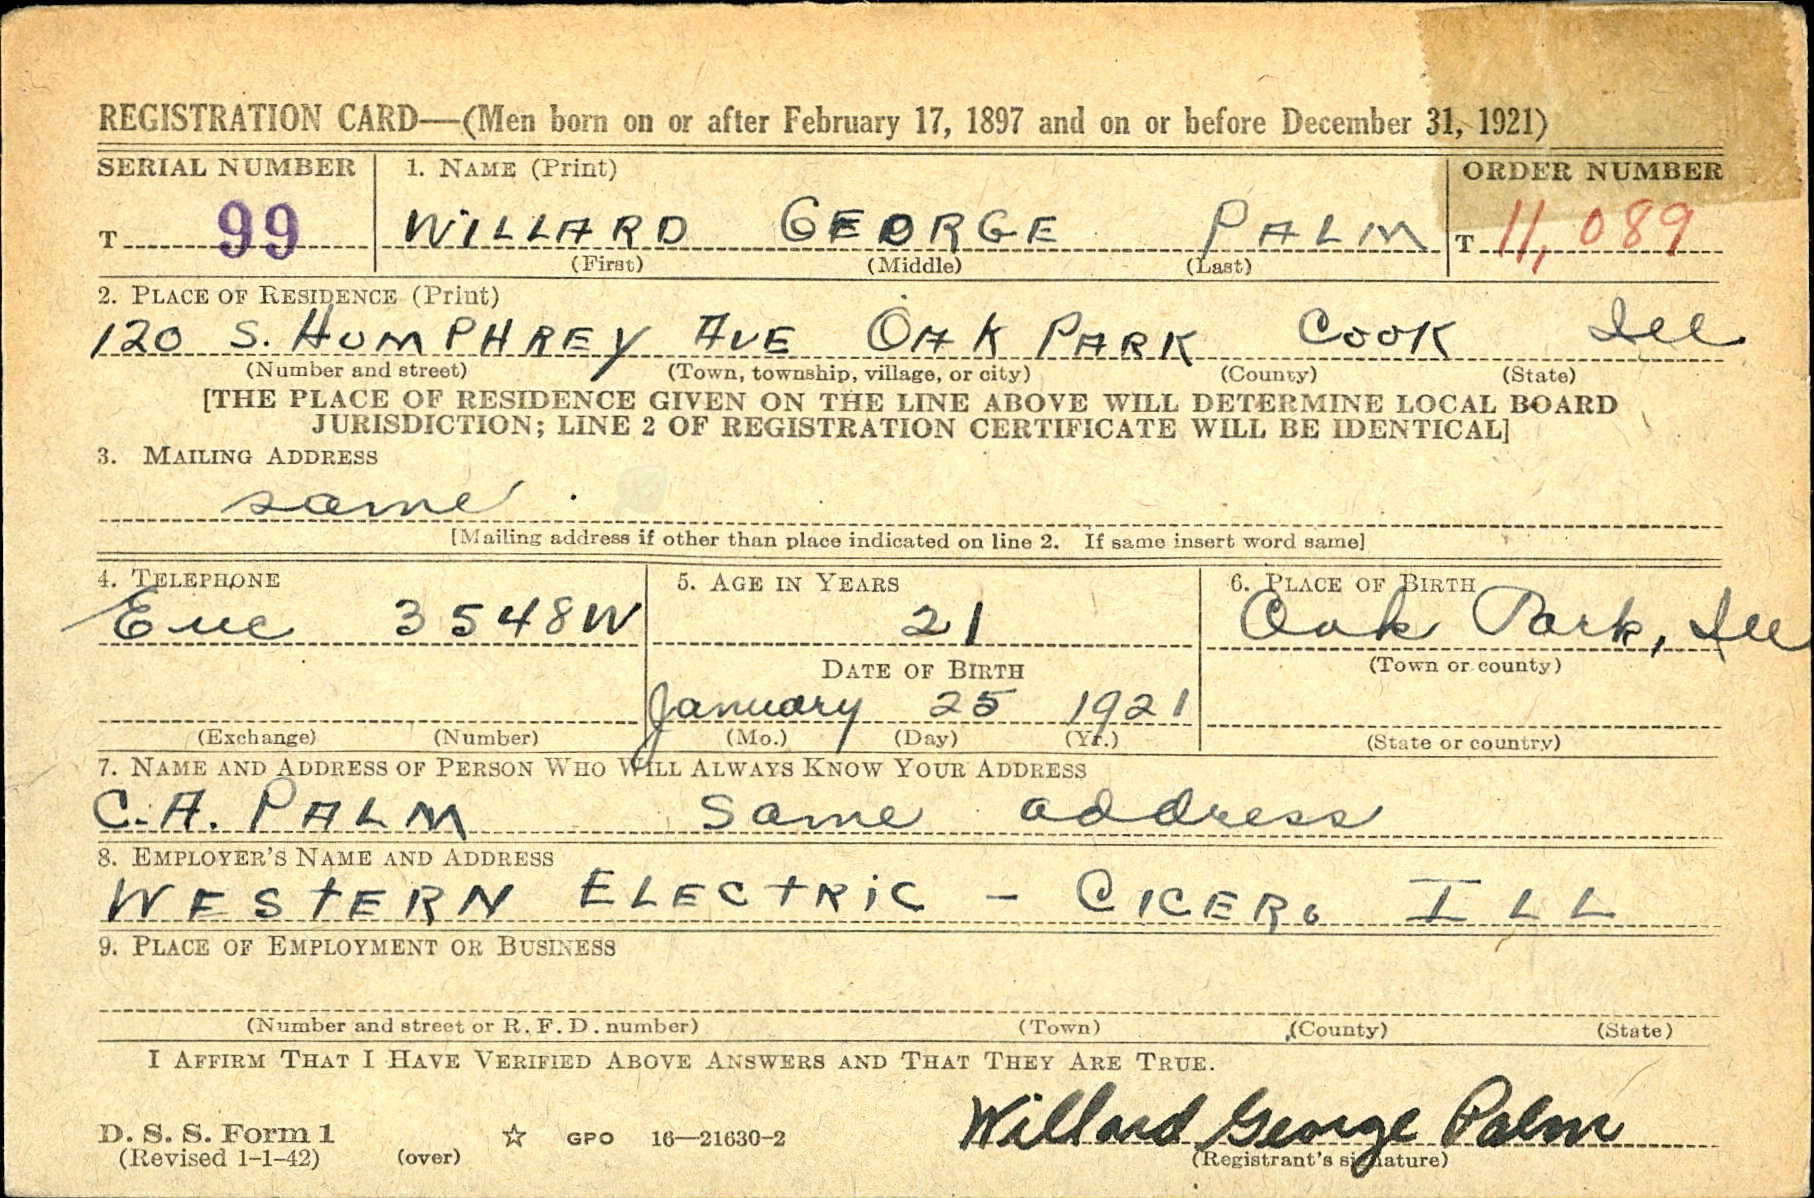 REGISTRATION CARD—(Men born on or after February 17, 1897 and on or before December 31, 1921)
SERIAL NUMBER 1. NAME (Print) ORDER NUMBER
T 99 WILLARD GEORGE PALM T 11,089
(First) (Middle) (Last)
2. PLACE OF RESIDENCE (Print)
120 S. HUMPHREY AVE OAK PARK COOK Ill
(Number and street) (Town, township, village, or city) (County) (State)
[THE PLACE OF RESIDENCE GIVEN ON THE LINE ABOVE WILL DETERMINE LOCAL BOARD
JURISDICTION; LINE 2 OF REGISTRATION CERTIFICATE WILL BE IDENTICAL]
3. MAILING ADDRESS
same
[Mailing address if other than place indicated on line 2. If same insert word same]
4. TELEPHONE 5. AGE IN YEARS 6. PLACE OF BIRTH
Euc 3548W 21 Oak Park, Ill
DATE OF BIRTH (Town or county)
January 25 1921
(Exchange) (Number) (Mo.) (Day) (Yr.) (State or country)
7. NAME AND ADDRESS OF PERSON WHO WILL ALWAYS KNOW YOUR ADDRESS
C.A. PALM same address
8. EMPLOYER'S NAME AND ADDRESS
WESTERN ELECTRIC - CICERO ILL
9. PLACE OF EMPLOYMENT OR BUSINESS
(Number and street or R. F. D. number) (Town) (County) (State)
I AFFIRM THAT I HAVE VERIFIED ABOVE ANSWERS AND THAT THEY ARE TRUE.
D. S. S. Form 1
(Revised 1-1-42) (over) ☆ GPO 16—21630-2 Willard George Palm
(Registrant's signature)